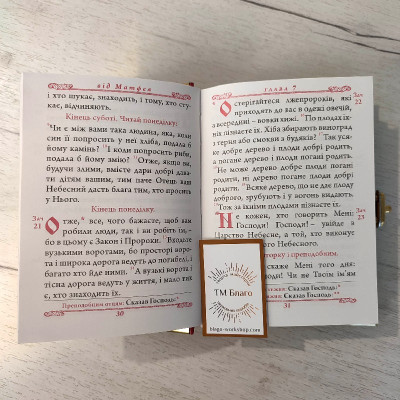 від Матфея
і хто шукає, знаходить, і тому, хто сту-
кає, відчиняють.
Кінець суботі. Читай понеділку:
Чи є між вами така людина, яка, коли
син її попросить у неї хліба, подала б
йому камінь? І коли попросить риби,
подала б йому змію? Отже, якщо ви,
будучи злими, вмієте дари добрі дава-
ти дітям вашим, тим паче Отець ваш
Небесний дасть блага тим, хто просить
у Нього.
Кінець понеділку.
Зач
21
Отже, все, чого бажаєте, щоб вам
робили люди, так і ви робіть їм,
бо в цьому є Закон і Пророки. Входьте
вузькими воротами, бо просторі ворота
і широка дорога ведуть до погибелі, і
багато хто йде ними. А вузькі ворота і
тісна дорога ведуть у життя, і мало тих
є, хто знаходить їх.
Преподобним отцям: Сказав Господь:
30
глава 7
Зач
22
Остерігайтеся лжепророків, які
приходять до вас в одежі овечій,
а всередині – вовки хижі. По плодах їх-
ніх пізнаєте їх. Хіба збирають виноград
з терна або смокви з будяків? Так вся-
ке добре дерево і плоди добрі родить,
а погане дерево і плоди погані родить.
Не може дерево добре плоди погані ро-
дити, ні дерево погане плоди добрі
родити. Всяке дерево, що не дає плоду
доброго, зрубують і у вогонь кидають.
Тож за їхніми плодами пізнаєте їх.
Зач
23
Не кожен, хто говорить Мені:
Господи! Господи! – увійде в
Царство Небесне, а той, хто виконує
Небесного.
преподобним.
скаже Мені того дня:
Господи! Чи не Твоїм ім'ям
Сказав Господь:
Сказав Господь:
31
ТМ Благо
blago-workshop.com